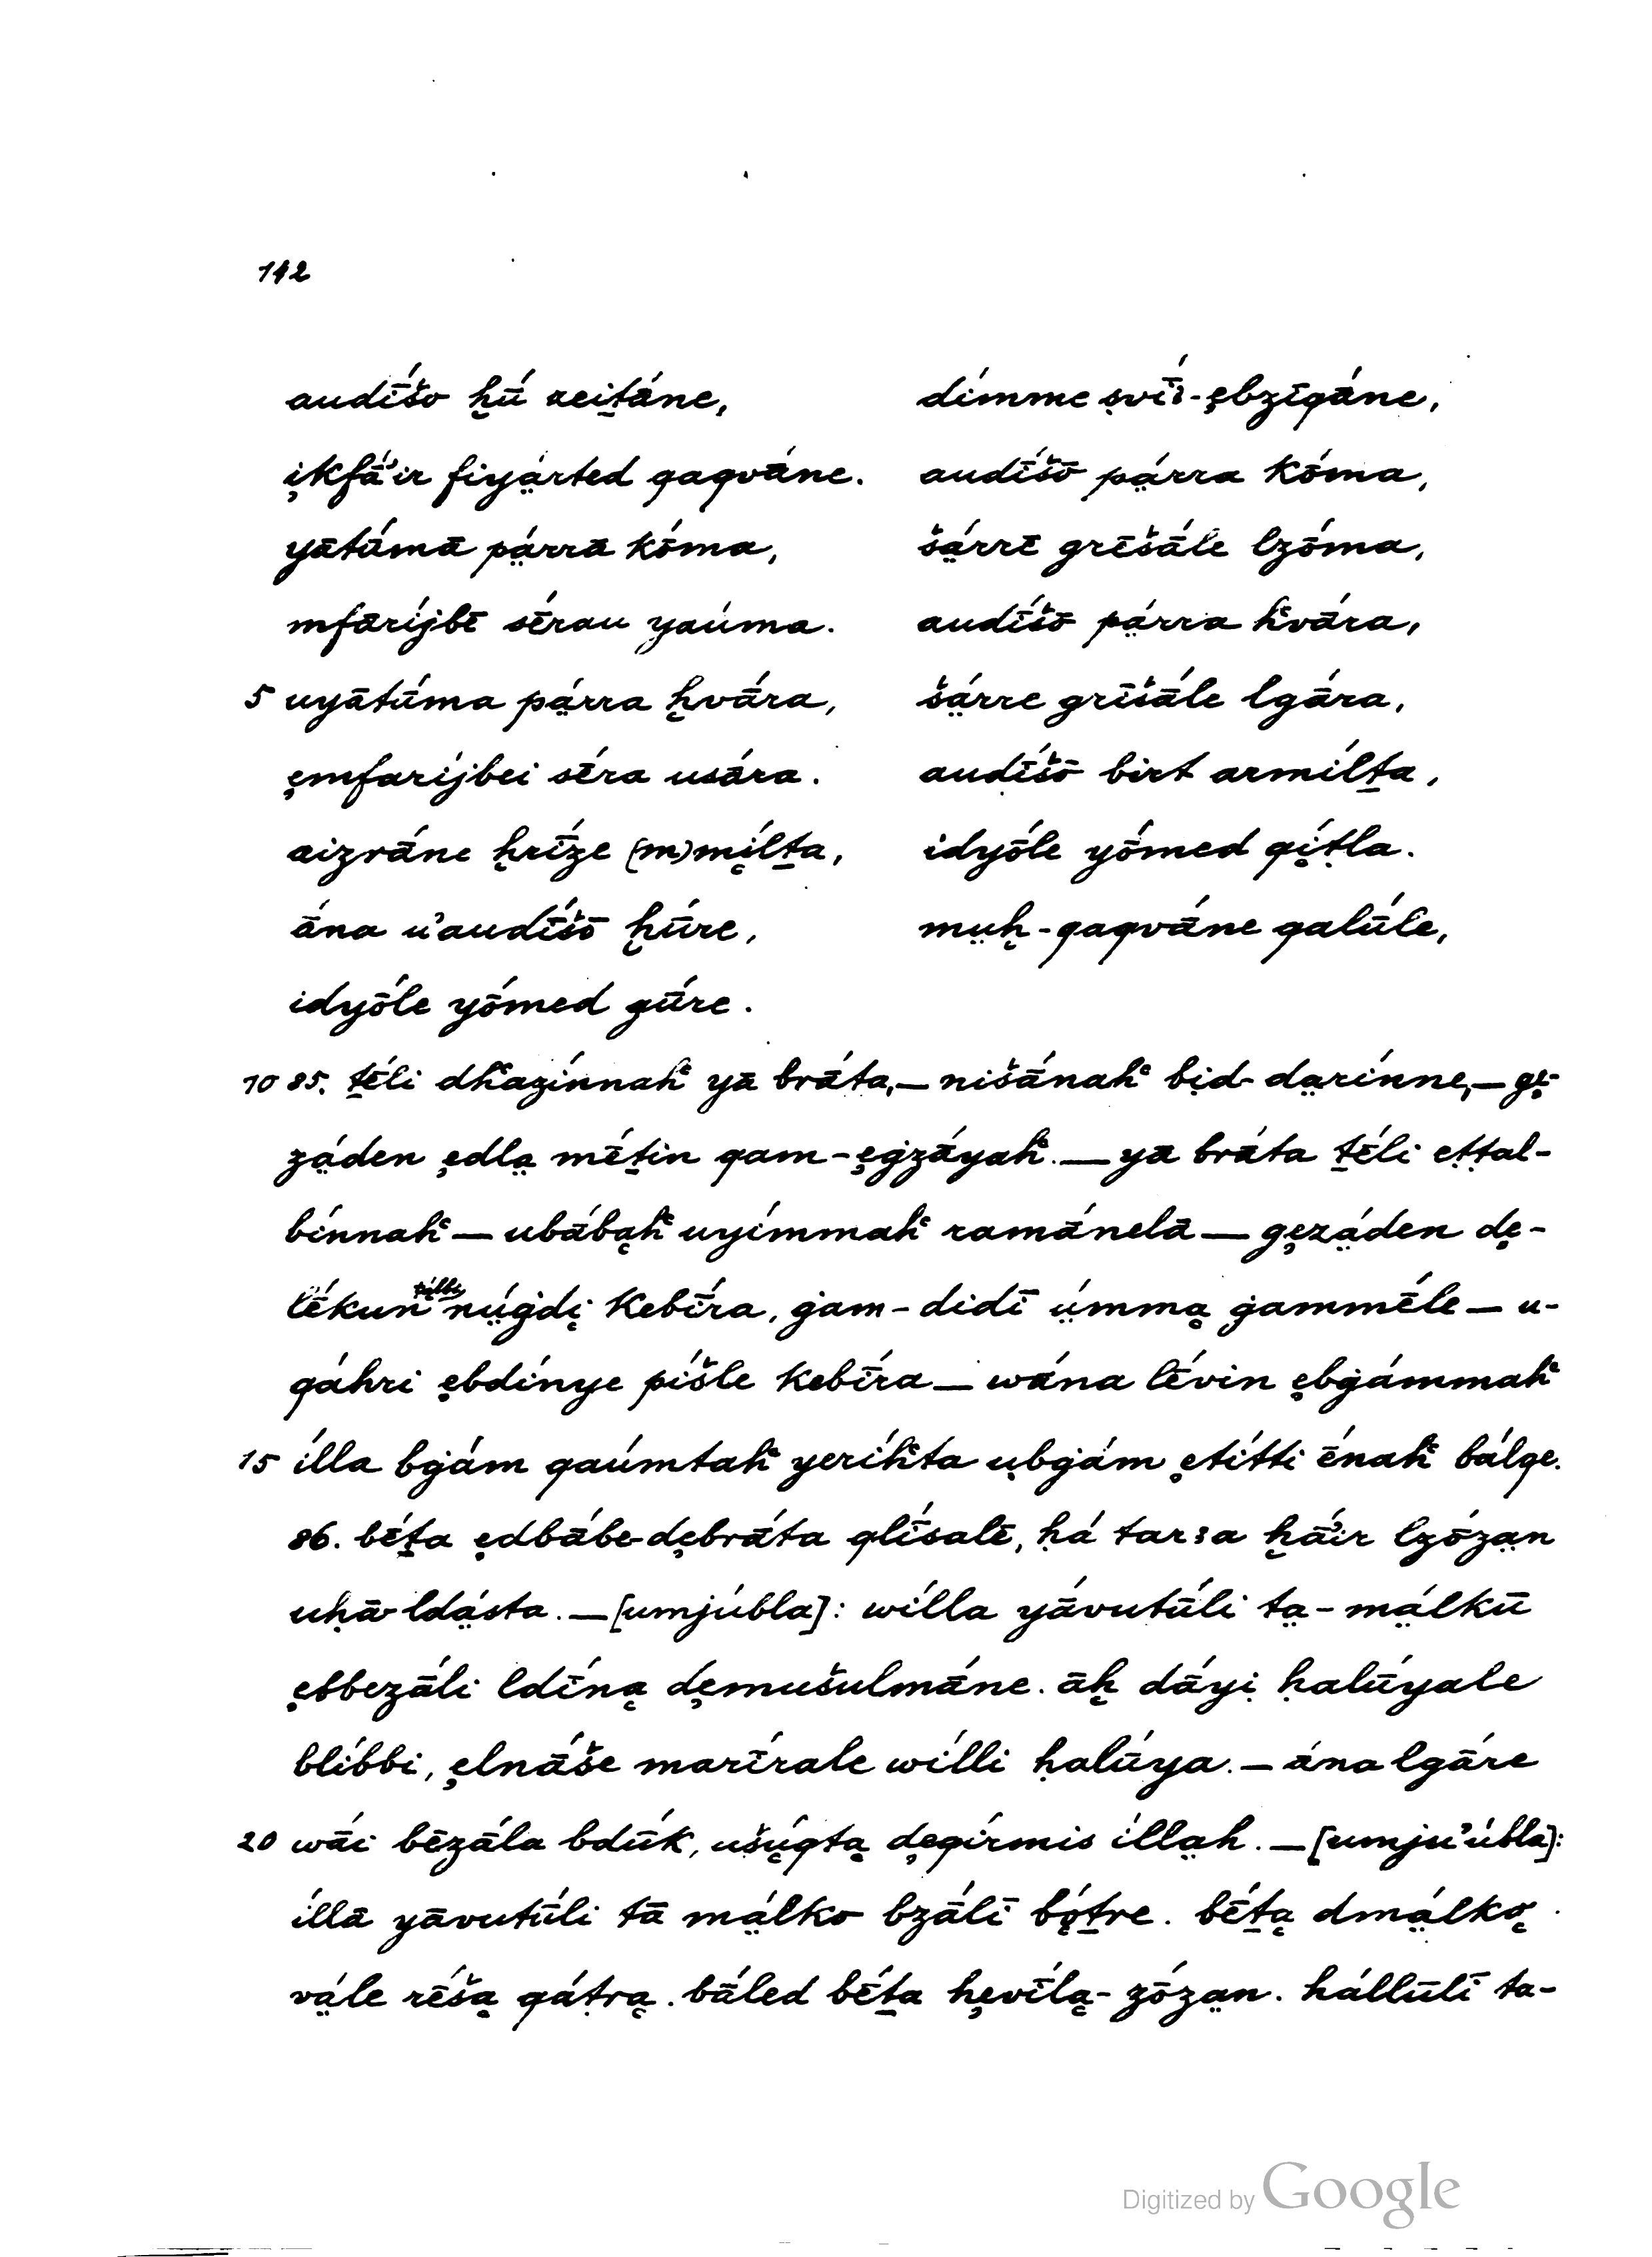 142
audī́šo ḫū́ zeiṯā́ne, dímme ṣvī́ʾ-ębzīqā́ne,
įkfā́ʾir fiyạ̈́rted qaqvā́ne. audī́šō pạ̈́rra kṓma,
yātū́mā pạ̈́rrā kṓma, šạ̈́rrē grēšā́le lzṓma,
mfārij́bē sḗrau yaúma. audī́šō pạ̈́rra ḣvā́ra,
5 uyātū́ma pạ̈́rra ḫvā́ra, šạ̈́rre grīšā́le lgā́ra,
ęmfaríjbei sḗra usā́ra. audī́šō birt armílṯa,
aizrā́ne ḫrī́ze (m)mįlṯa, idyṓle yṓmed qįṭla.
ā́na u'audī́šō ḫū́re, mṳḫ-qaqvā́ne qalū́le,
idyṓle yṓmed gū́re.
10 85. ṯḗli dḣazínnaḣ yā brā́ta,— nišā́naḣ bịd- dạrínne,— gę-
zạ̈́den ędlạ mḗṯin qam-ęgzā́yaḣ. — yā brā́ta ṯḗli eṭṭal-
bínnaḣ — ubā́bąḣ uyímmaḣ ramā́nelā — gęzạ̈́den dę-
lḗkun pílbi nṳ́ġdį kebī́ra, ġam-didī ṳ́mmą ġammḗle — u-
qáhri ębdínye píšle kebī́ra — wána lḗvin ębġámmaḣ
15 ílla bġám qaúmtaḣ yeríḣta ubġám ętítti ḗnaḣ bálqe.
86. bḗṯa ędbābe dębrā́ta qlī́salē, ḥá tarʾa ḫā́ʾir lzṓzạn
uḥā ldạ̈́sta. — [umjúbla]: wílla yāvutū́li tạ-mạ̈́lkū
ębbezā́li ldī́ną dęmušulmā́ne. āḫ dā́yị ḥalū́yale
blíbbi, ęlnā́še marī́rale wílli ḥalū́ya. — ána lgā́re
20 wā́i bēzā́la bdū́k, ušųqtą dęqírmis íllạh. — [umju'úbla]:
íllā yāvutū́li tā mạ̈́lko bzā́lī bǫ́ṯre. bḗṯą dmạ̈́lkǫ
vạ̈́le rḗšą qáṭrą. bāled bḗṯa hęvī́lą- zṓzạn. hállūlī ta-
Digitized by Google